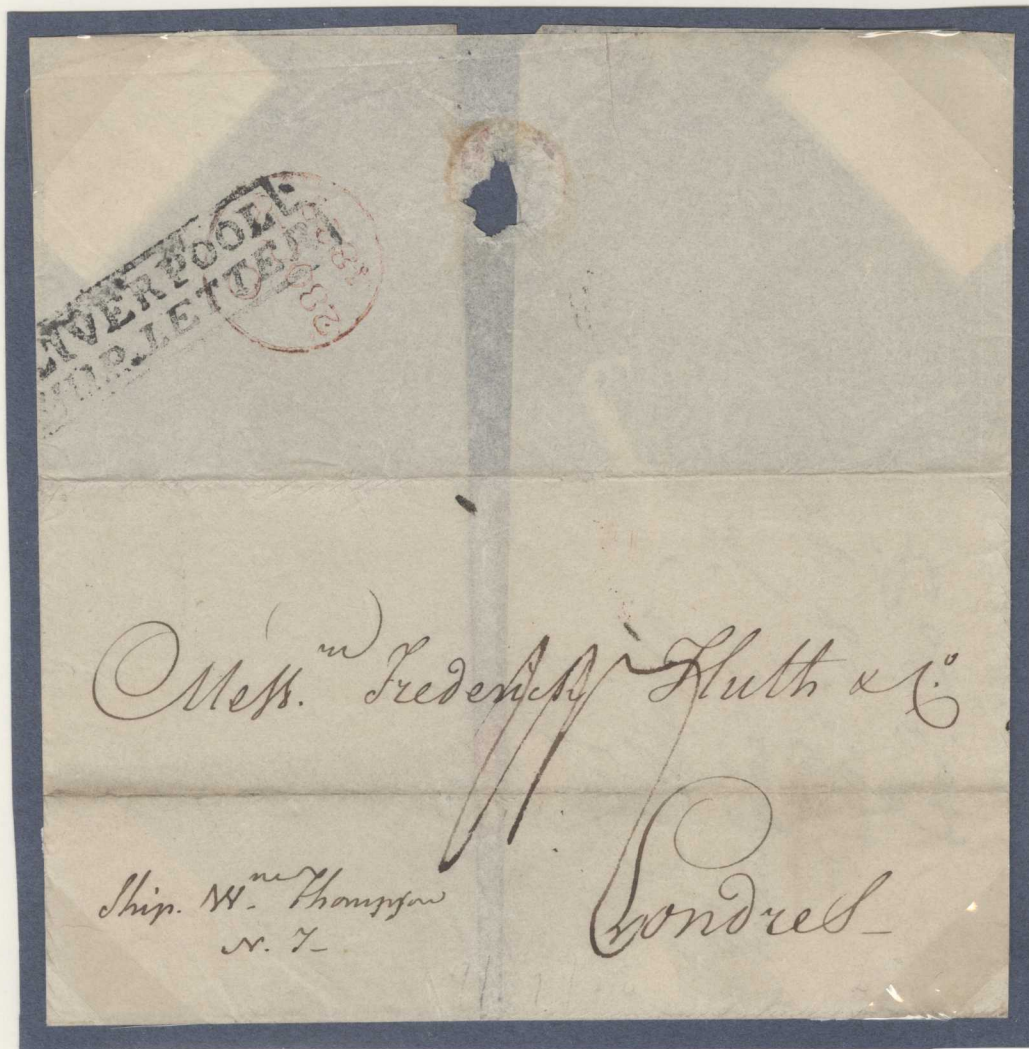 LIVERPOOL
SHIP LETTER
Mess.rs Frederick Huth & Co.
Londres
Ship. Wm. Thompson
N. Y_